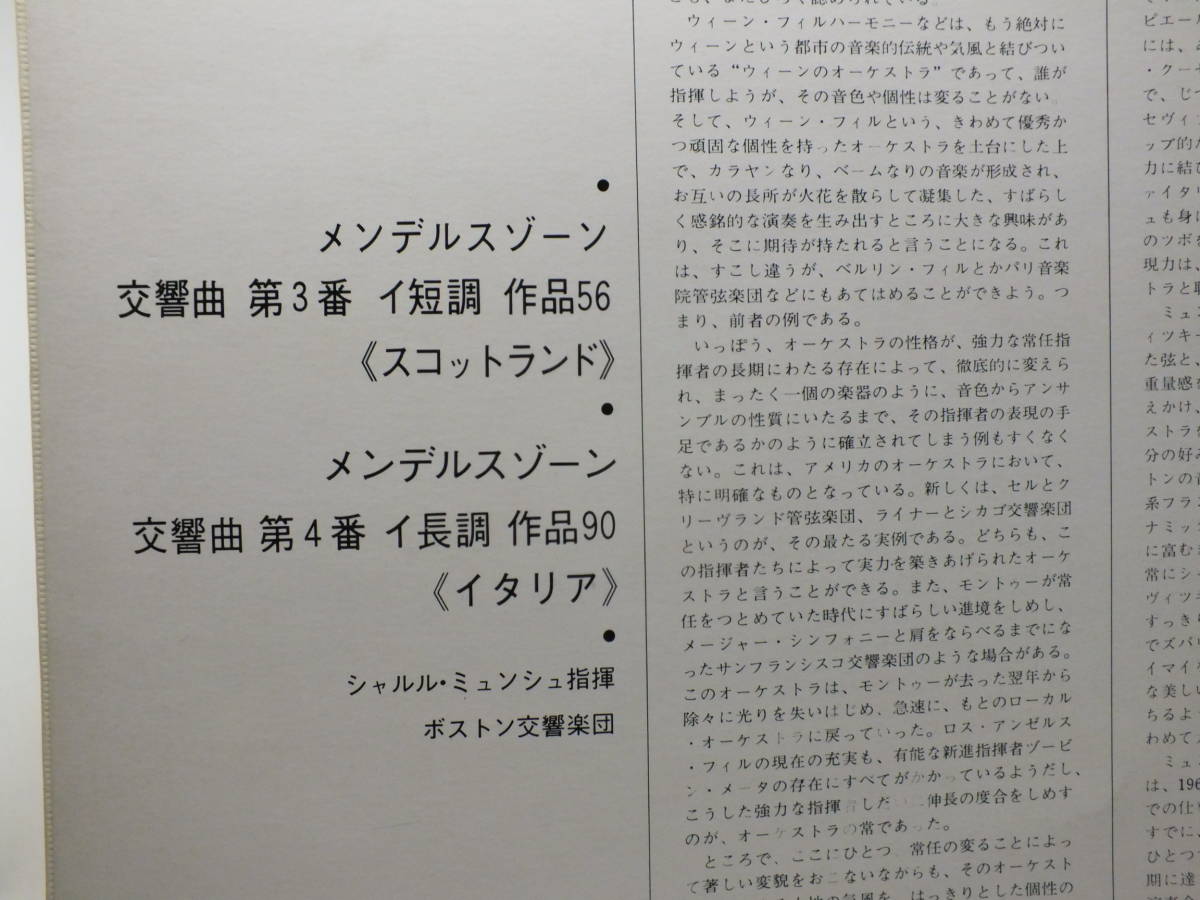 •
メンデルスゾーン
交響曲 第3番 イ短調 作品56
《スコットランド》
•
メンデルスゾーン
交響曲 第4番 イ長調 作品90
《イタリア》
•
シャルル・ミュンシュ指揮
ボストン交響楽団
ウィーン・フィルハーモニーなどは、もう絶対に
ウィーンという都市の音楽的伝統や気風と結びつい
ている“ウィーンのオーケストラ”であって、誰が
指揮しようが、その音色や個性は変ることがない。
そして、ウィーン・フィルという、きわめて優秀か
つ頑固な個性を持ったオーケストラを土台にした上
で、カラヤンなり、ベームなりの音楽が形成され、
お互いの長所が火花を散らして凝集した、すばらし
く感銘的な演奏を生み出すところに大きな興味があ
り、そこに期待が持たれると言うことになる。これ
は、すこし違うが、ベルリン・フィルとかパリ音楽
院管弦楽団などにもあてはめることができよう。つ
まり、前者の例である。
いっぽう、オーケストラの性格が、強力な常任指
揮者の長期にわたる存在によって、徹底的に変えら
れ、まったく一個の楽器のように、音色からアンサ
ンブルの性質にいたるまで、その指揮者の表現の手
足であるかのように確立されてしまう例もすくなく
ない。これは、アメリカのオーケストラにおいて、
特に明確なものとなっている。新しくは、セルとク
リーヴランド管弦楽団、ライナーとシカゴ交響楽団
というのが、その最たる実例である。どちらも、こ
の指揮者たちによって実力を築きあげられたオーケ
ストラと言うことができる。また、モントゥーが常
任をつとめていた時代にすばらしい進境をしめし、
メージャー・シンフォニーと肩をならべるまでにな
ったサンフランシスコ交響楽団のような場合がある。
このオーケストラは、モントゥーが去った翌年から
除々に光りを失いはじめ、急速に、もとのローカル
・オーケストラに戻っていった。ロス・アンゼルス
・フィルの現在の充実も、有能な新進指揮者ズービ
ン・メータの存在にすべてがかかっているようだし、
こうした強力な指揮者しだいに伸長の度合をしめす
のが、オーケストラの常であった。
ところで、ここにひとつ、常任の変ることによっ
て著しい変貌をおこないながらも、そのオーケスト
ピエール
には、
・クーセ
で、じつ
セヴィ
ップ的
力に結び
ァイタ
ュも身に
のツボを
現力は、
トラと
ミュン
ィツキー
た弦と、
重量感を
えかけ、
ストラを
分の好み
トンの音
系フラ
ナミッ
に富む
常にシ
ヴィツキ
すっきり
でズバリ
イマイ
な美しい
ちるよ
わめて
ミュ
は、196
での仕
すでに、
ひとつ
期に達